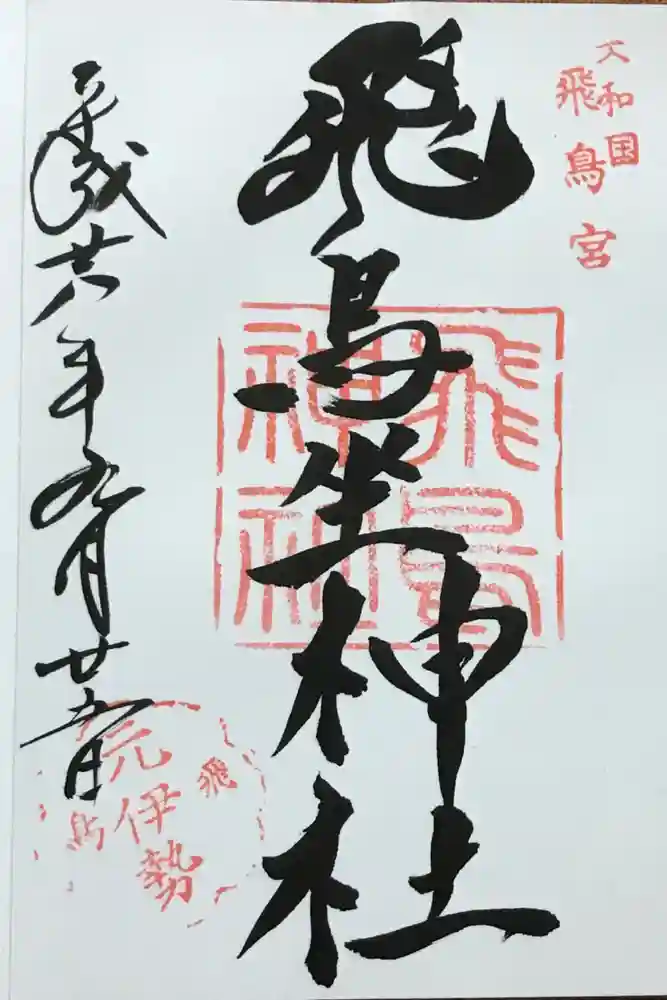 大和国
飛鳥宮
飛鳥坐神社
飛鳥
神社
平成廿八年九月廿五日
元伊勢
飛鳥